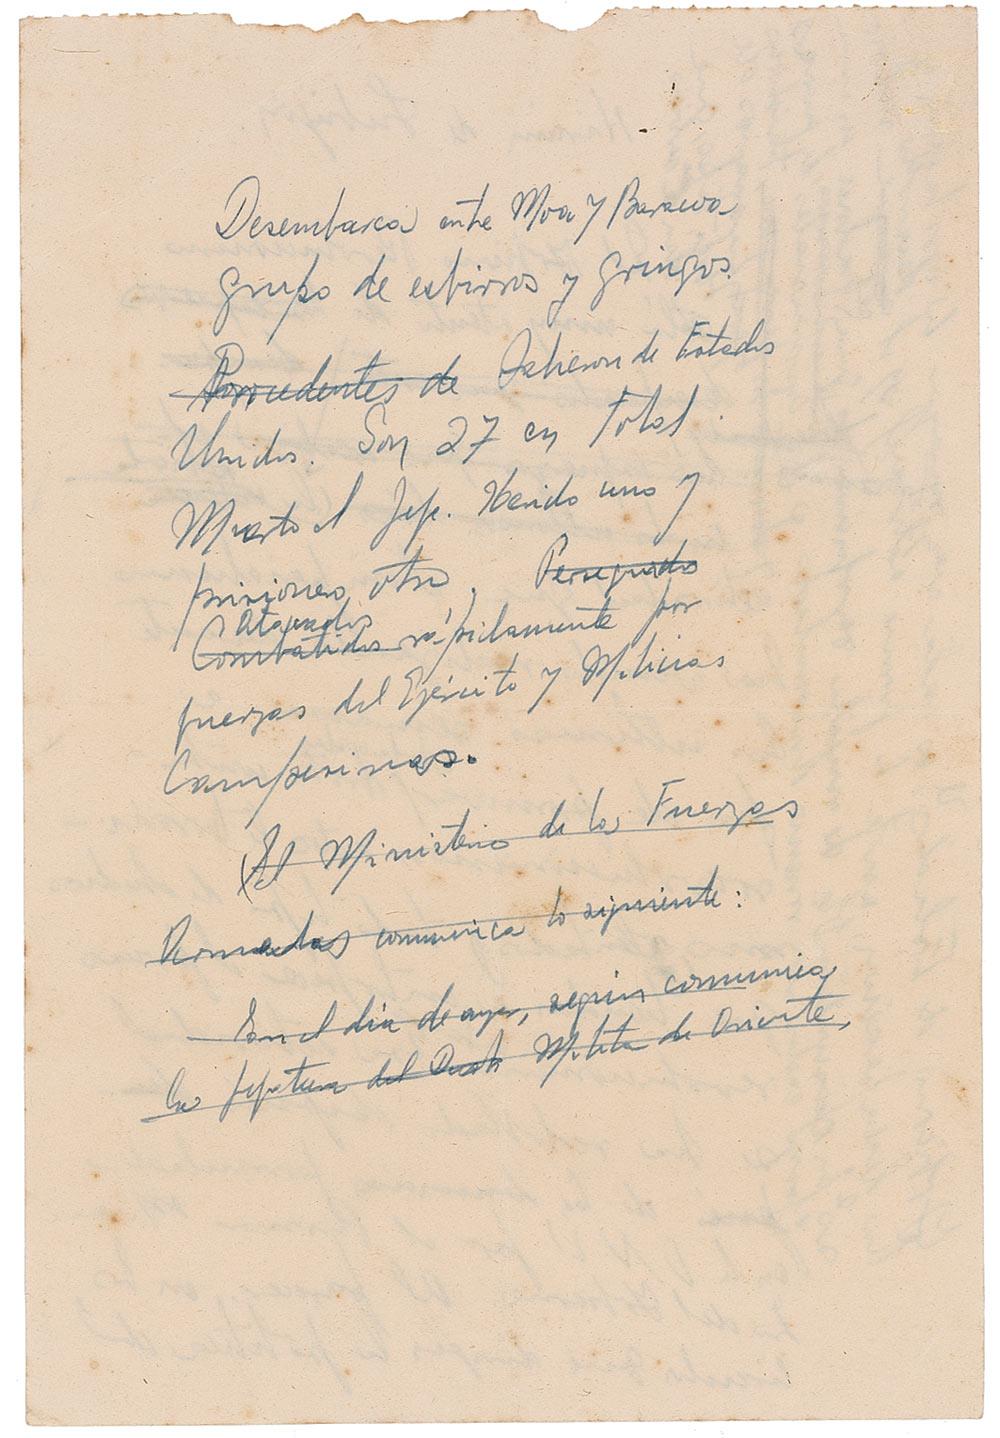 Desembarca entre Moa y Baracoa
grupo de esbirros y gringos.
Procedentes de Salieron de Estados
Unidos. Son 27 en Total.
Muerto el Jefe. Herido uno y
prisionero otro. Perseguidos
Atacados
Combatidos rápidamente por
fuerzas del Ejército y Milicias
Campesinas.
(El Ministerio de las Fuerzas
Armadas comunica lo siguiente:
En el día de ayer, según comunica
la Jefatura del Militar de Oriente,